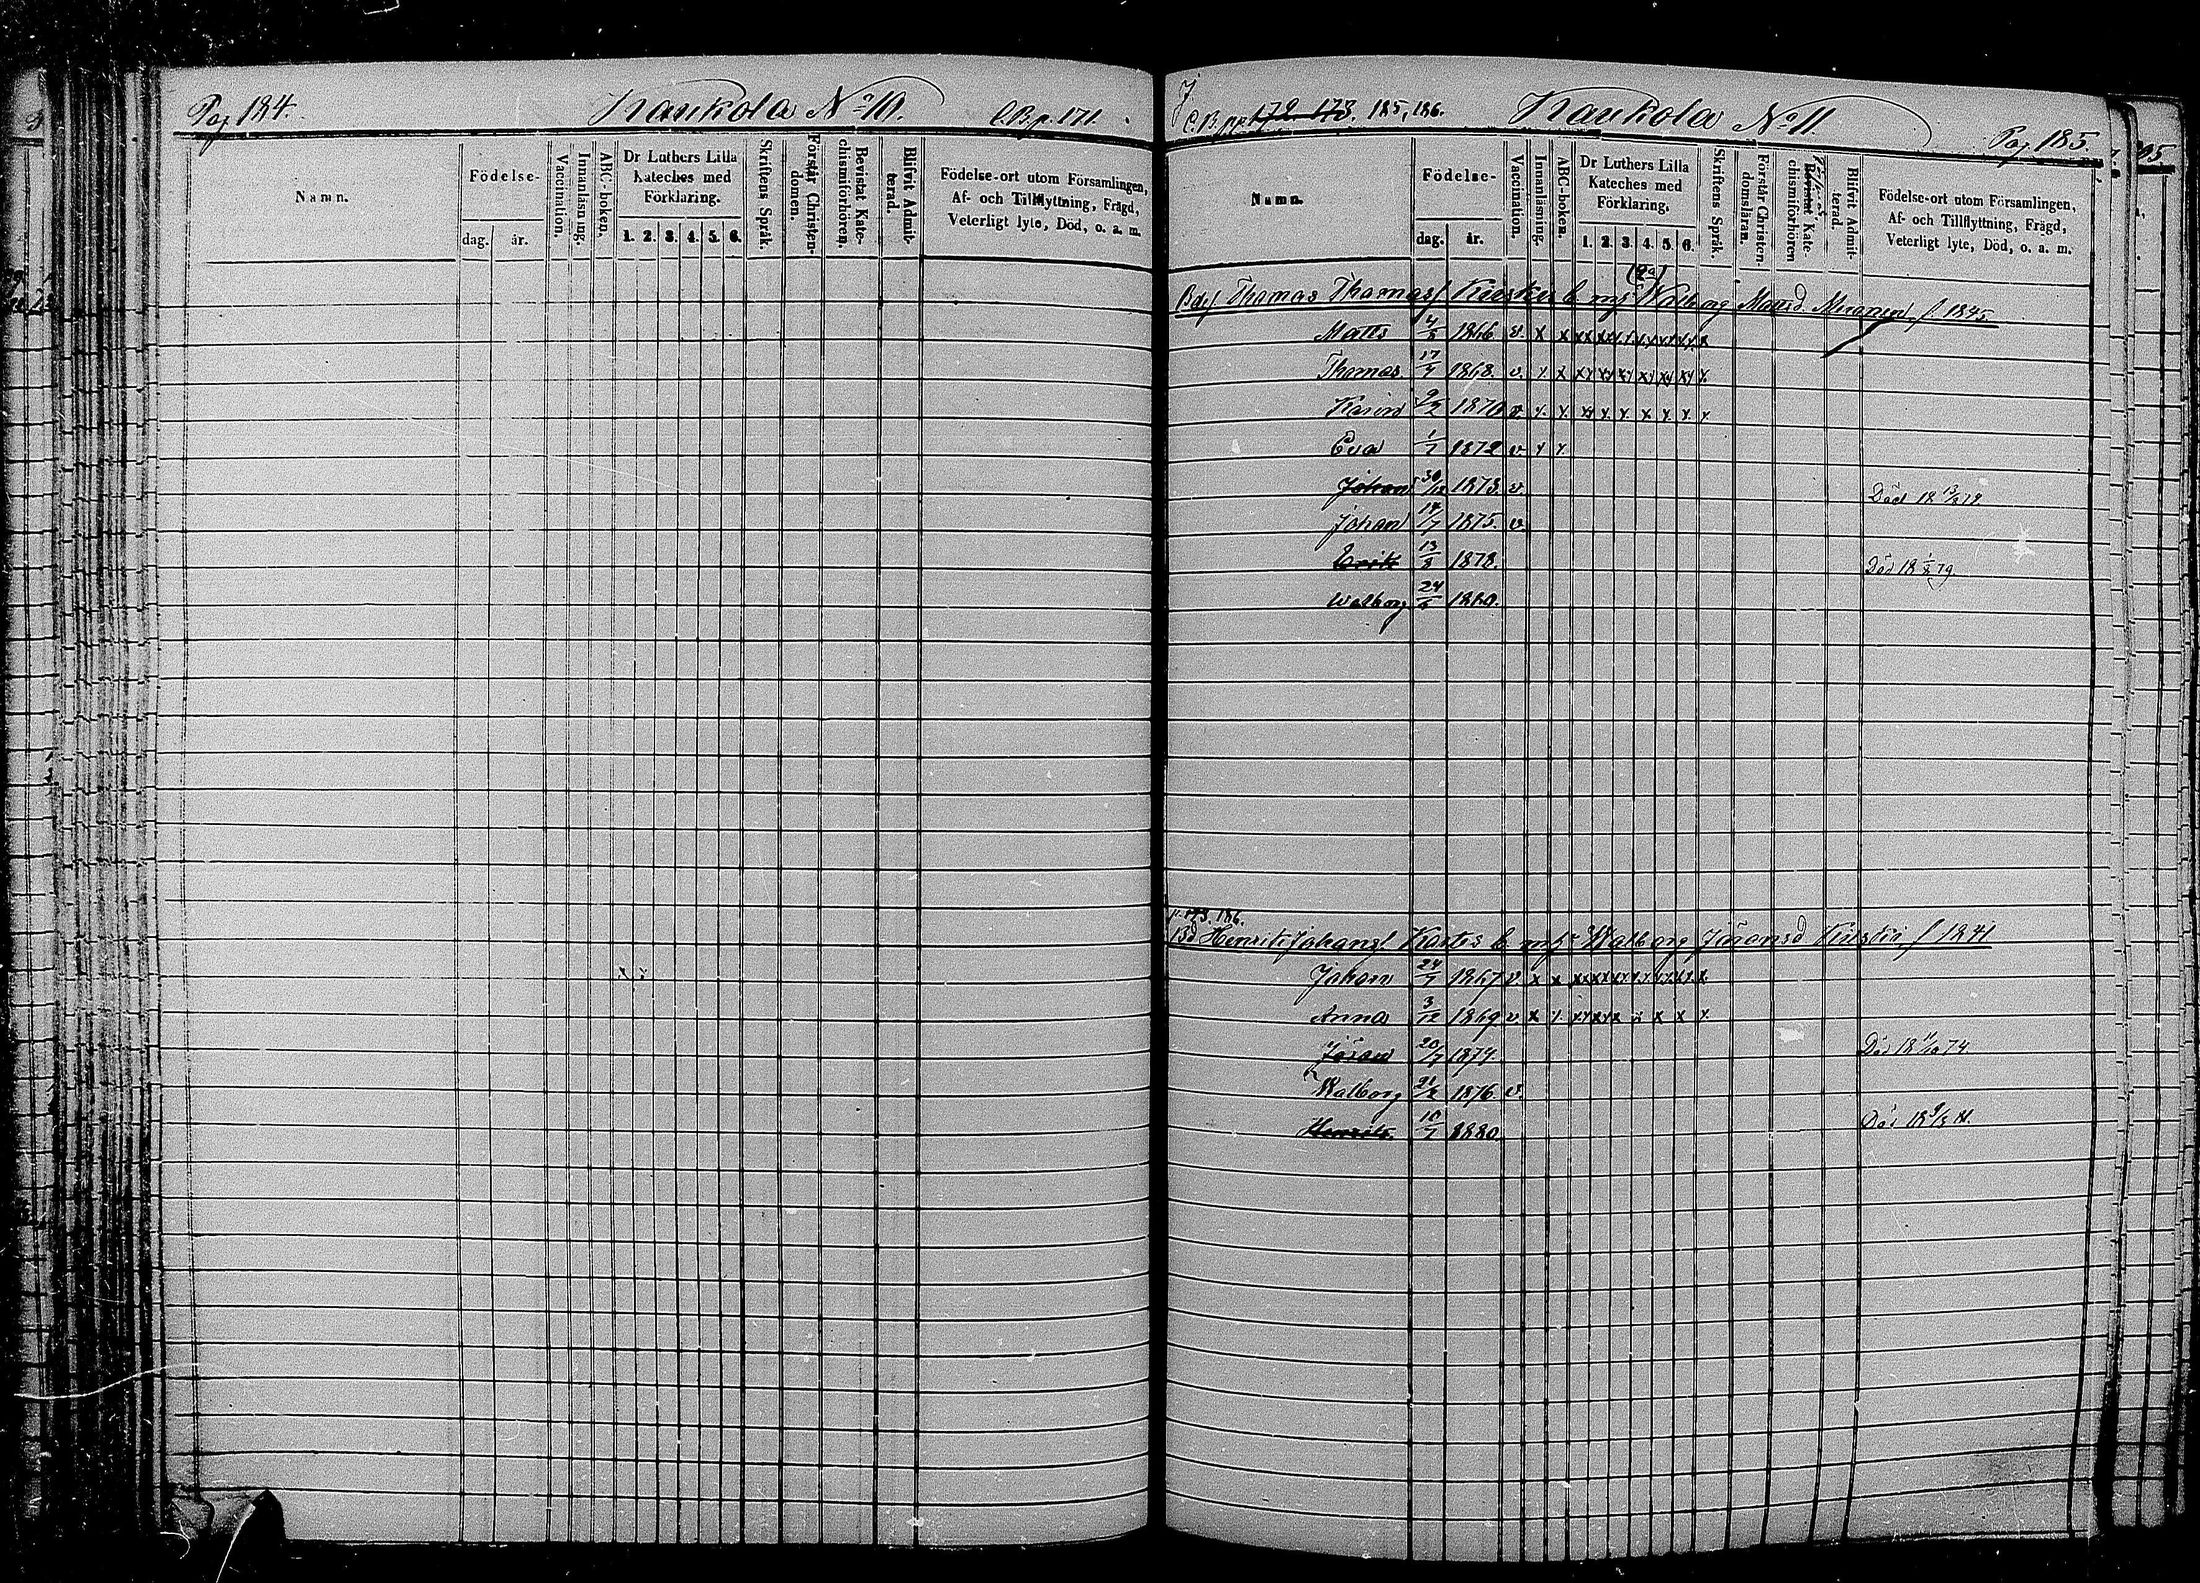 Pag 184.
Kaukola No 10.
C.B.p. 171.
Namn.
Födelse-
dag. år.
Vaccination.
Innanläsning.
ABC-boken.
Dr Luthers Lilla Kateches med Förklaring.
1. 2. 3. 4. 5. 6.
Skriftens Språk.
Förstår Christendomen.
Bevistat Katechismiförhören.
Blifvit Admitterad.
Födelse-ort utom Församlingen,
Af- och Tillflyttning, Frägd,
Veterligt lyte, Död, o. a. m.
C.B. pp. 172 173, 185, 186.
Kaukola No 11.
Pag 185.
Namn.
Födelse-
dag. år.
Vaccination.
Innanläsning.
ABC-boken.
Dr Luthers Lilla Kateches med Förklaring.
1. 2. 3. 4. 5. 6.
Skriftens Språk.
Förstår Christendomsläran.
Bevistat Katechismiförhören
Blifvit Admitterad.
Födelse-ort utom Församlingen,
Af- och Tillflyttning, Frägd,
Veterligt lyte, Död, o. a. m.
Thomas Thomass Walborg Mattsd f. 1845
Matts 1866 v. x x
Thomas 17/7 1868. v. x x
Karin 1870 v x x
Eva 1/7 1872 v x x
Johan 30/12 1873. v. Död 18
Johan 14/7 1875. v
Erik 13/3 1878. Död 18 79
Walborg 24 1880.
p. 173. 186.
Henrik Johans b. Walborg f 1841
Johan 24/7 1867 v. x x
Anna 3/12 1869 v. x x
Jöran 20/7 1874. Död 18 11/10 74.
Walborg 21/2 1876 v.
Henrik 10/7 1880 Död 18 81.